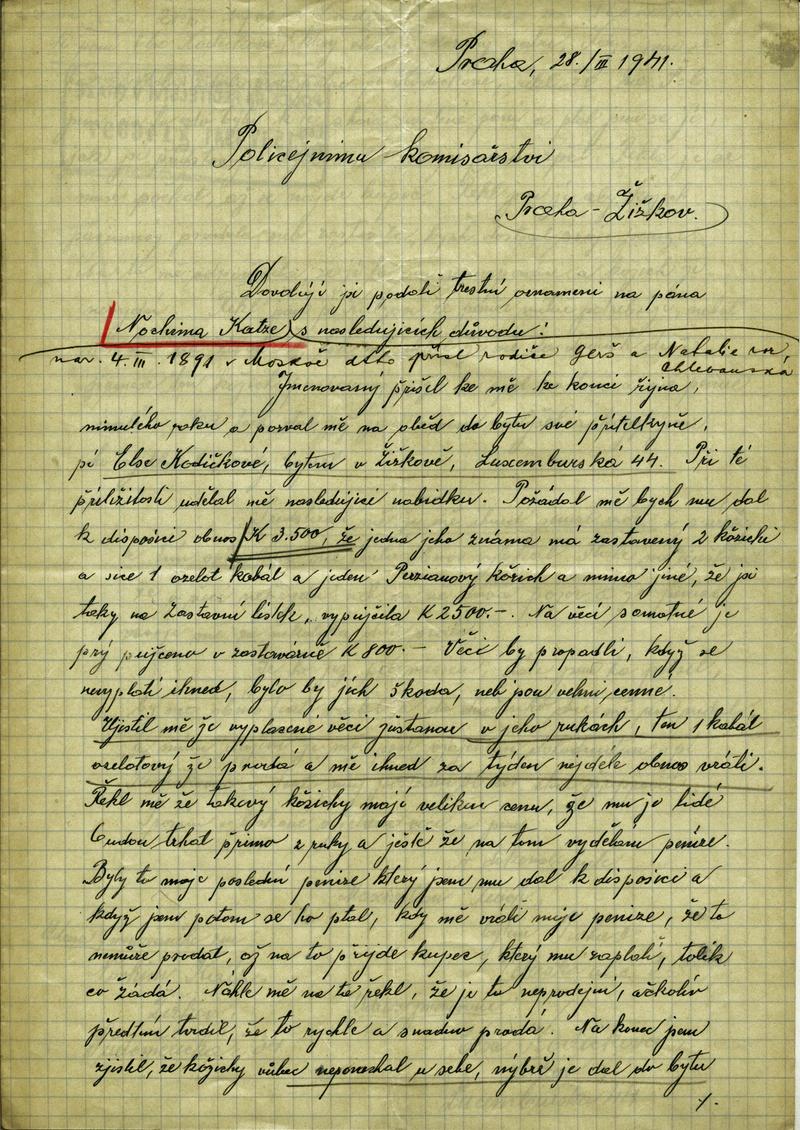 Praha, 28./III 1941.
Policejnimu komisařstvi
Praha - Žižkov.
Dovoluji si podati trestní oznameni na pána
Nochima Katze s nasledujicich důvodu:
nar. 4. III. 1891 v Moskvě dtto přísl rodiče Gerš a Natalie roz.
Chlebanská
Jmenovaný přišel ke mě ke konci řijna,
minulého roku a pozval mě na oběd do bytu své přitelkyně,
pí Else Hodičkové, bytem v Žižkově, Luxemburská 44. Při té
přiležitosti udělal mě nasledujici nabidku. Požádal mě bych mu dal
k disposici obnos K 3.500, že jedna jeho známa má zastavený 2 kožichi
a sice 1 ozelot kabát a jeden Perzianový kožich a mimo jiné, že si
taky na Zastavní listek, vypujčila K 2500.- Na věcí samotné je
prý pujčeno v zastavárně K 800.- Věci by propadli, když se
nevyplati ihned, bylo by jích škoda, neb jsou velmi cenné.
Ujistil mě že vyplacené věci zůstanou v jeho rukách, ten 1 kabát
ozelotový že prodá a mě ihned za týden nejdéle obnos vráti.
Řekl mě že takový kožichy maji velikou cenu, že mu je lidé
budou trhat přimo z ruky a ještě že na tom vydělám penize.
Byly to moje poslední penize který jsem mu dal k disposici a
když jsem potom se ho ptal, kdy mě vráti moje penize, že to
nemůže prodat, až na to přijde kupec, který mu zaplatí, tolik
co žádá. Náhle mě na to řekl, že je to neprodejní, ačkolív
předtím tvrdil, že to rychle a snadno prodá. Na konec jsem
zjistil, že kožichy vůbec neponechal u sebe, nýbrž je dal do bytu
./.